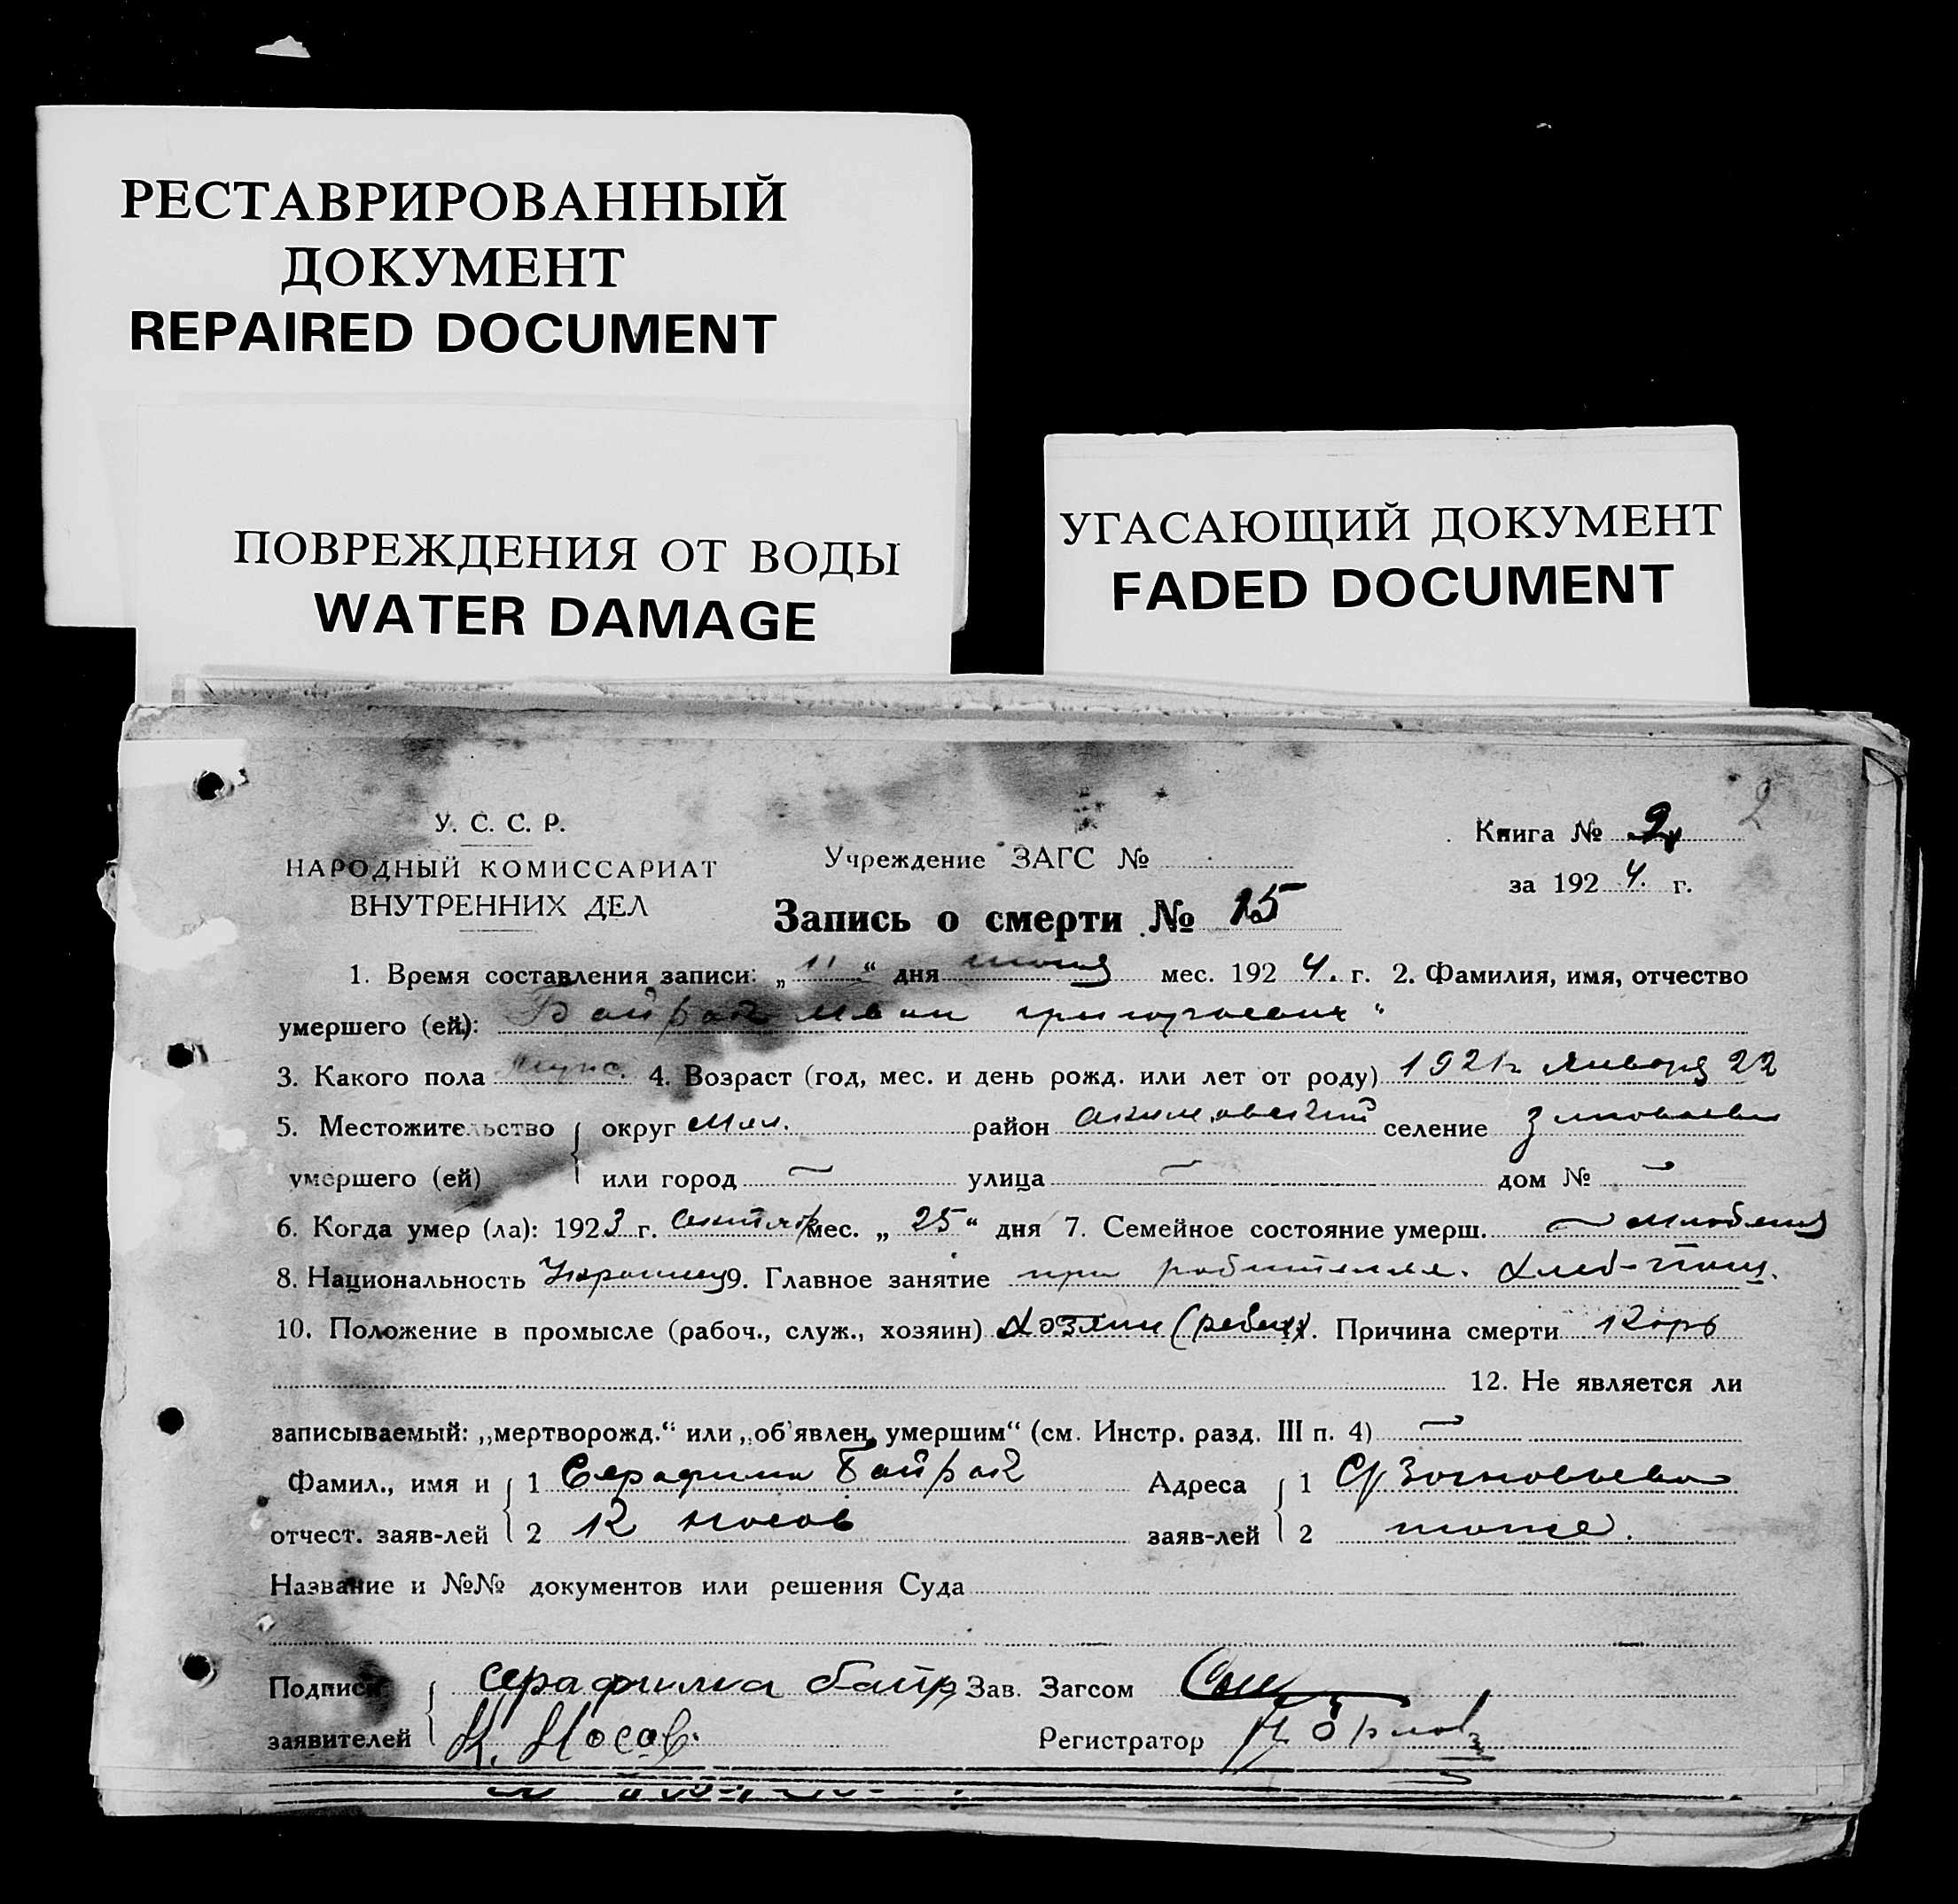 РЕСТАВРИРОВАННЫЙ
ДОКУМЕНТ
REPAIRED DOCUMENT
ПОВРЕЖДЕНИЯ ОТ ВОДЫ
WATER DAMAGE
УГАСАЮЩИЙ ДОКУМЕНТ
FADED DOCUMENT
2
У. С. С. Р.
НАРОДНЫЙ КОМИССАРИАТ
ВНУТРЕННИХ ДЕЛ
Учреждение ЗАГС №
Книга № 2
за 1924 г.
Запись о смерти № 15
1. Время составления записи: „11“ дня мес. 1924. г. 2. Фамилия, имя, отчество
умершего (ей): Байрак Иван григорьевич
3. Какого пола мужс. 4. Возраст (год, мес. и день рожд. или лет от роду) 1921г января 22
5. Местожительство округ Мел. район акимовский селение
умершего (ей) или город — улица — дом № —
6. Когда умер (ла): 1923 г. сентябр мес. „25“ дня 7. Семейное состояние умерш. —
8. Национальность Украинец 9. Главное занятие при
10. Положение в промысле (рабоч., служ., хозяин) хозяин (ребен). Причина смерти Корь
12. Не является ли
записываемый: „мертворожд.“ или „об'явлен умершим“ (см. Инстр. разд. III п. 4) —
Фамил., имя и 1 Серафима Байрак Адреса 1
отчест. заяв-лей 2 К Носов заяв-лей 2 тоже.
Название и №№ документов или решения Суда
Подписи серафима байр Зав. Загсом
заявителей К. Носов. Регистратор